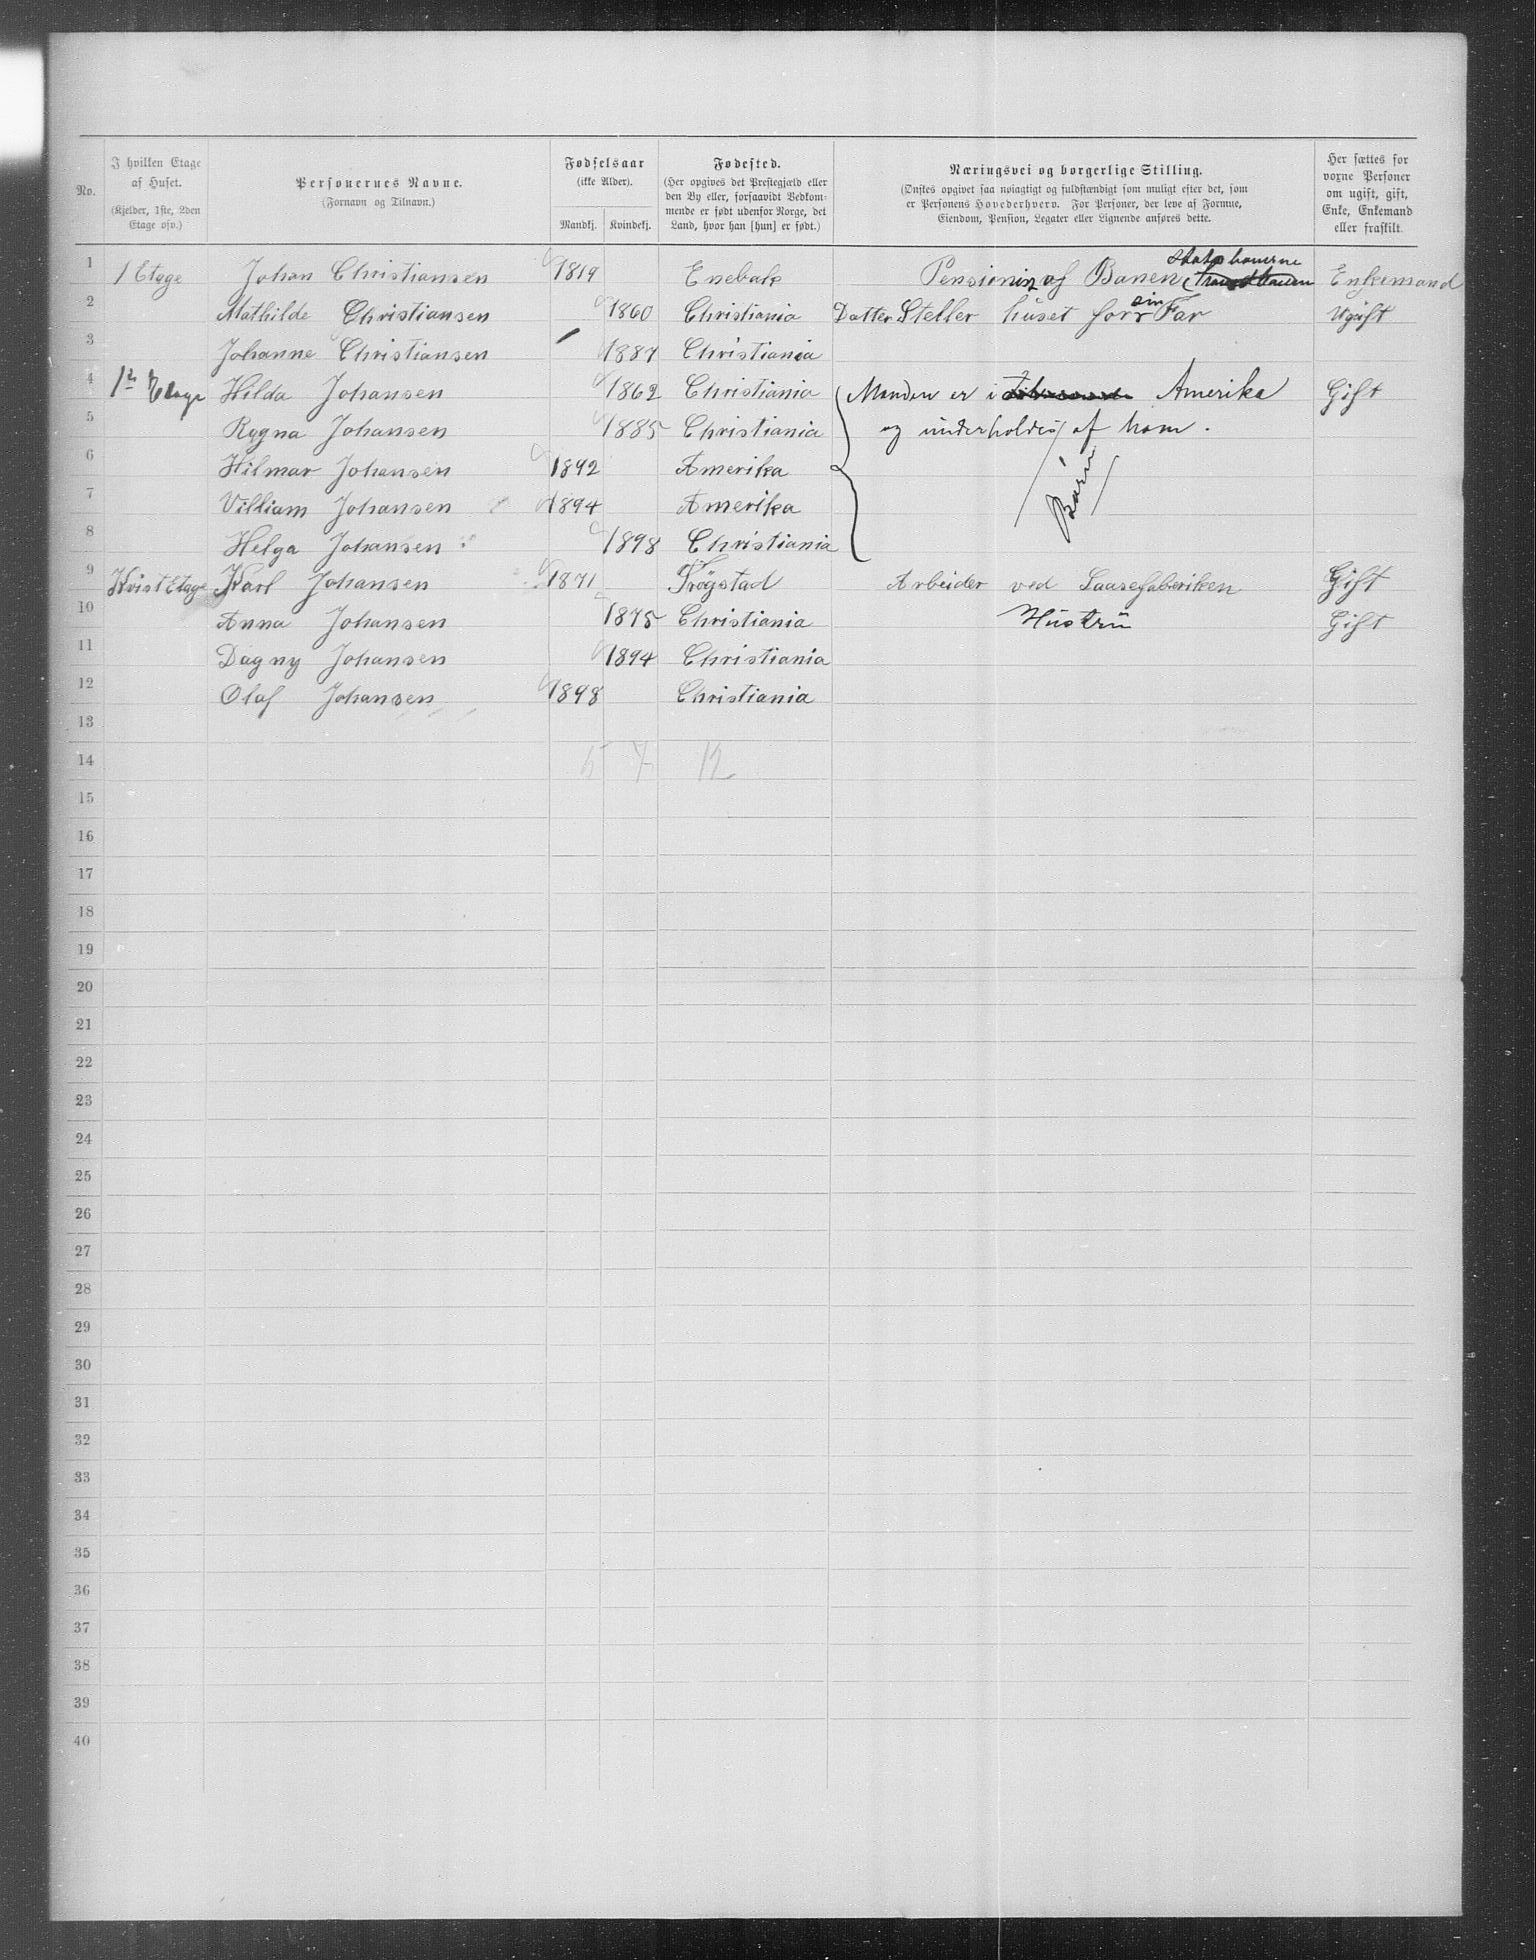 No. I hvilken Etage af Huset. (Kjelder, 1ste, 2den Etage osv.) Personernes Navne. (Fornavn og Tilnavn.) Fødselsaar (ikke Alder). Mandkj. Kvindekj. Fødested. (Her opgives det Prestegjæld eller den By eller, forsaavidt Vedkommende er født udenfor Norge, det Land, hvor han [hun] er født.) Næringsvei og borgerlige Stilling. (Ønskes opgivet saa nøiagtigt og fuldstændigt som muligt efter det, som er Personens Hovederhverv. For Personer, der leve af Formue, Eiendom, Pension, Legater eller Lignende anføres dette.) Her sættes for voxne Personer om ugift, gift, Enke, Enkemand eller fraskilt.
1 1 Etage Johan Christiansen 1819 Enebak Pensionin af Banen Statsbanerne Enkemand
2 Mathilde Christiansen 1860 Christiania Datter Steller huset forr sin Far Ugift
3 Johanne Christiansen 1887 Christiania
4 1ste Etage Hilda Johansen 1862 Christiania Manden er i Amerika Gift
5 Rагna Johansen 1885 Christiania og underholdes af ham.
6 Hilmar Johansen 1892 Amerika
7 Villiam Johansen 1894 Amerika Børn
8 Helga Johansen 1898 Christiania
9 Kvist Etage Karl Johansen 1871 Trögstad Arbeider ved Laasefaberiken Gift
10 Anna Johansen 1875 Christiania Hustru Gift
11 Dagny Johansen 1894 Christiania
12 Olaf Johansen 1898 Christiania
13
14 5 7 12
15
16
17
18
19
20
21
22
23
24
25
26
27
28
29
30
31
32
33
34
35
36
37
38
39
40